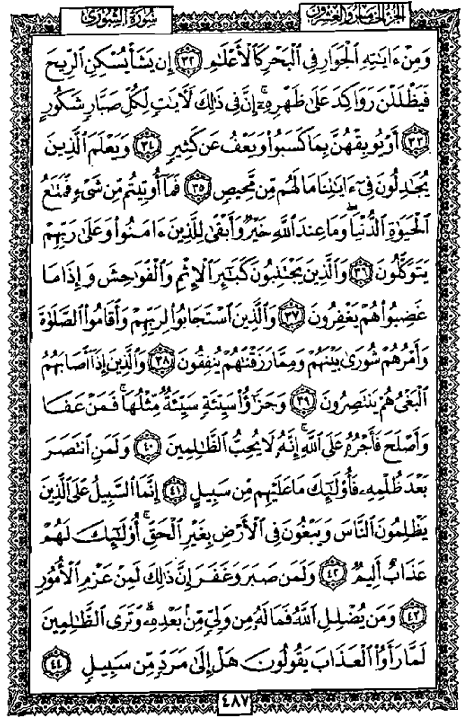 الجزء الخامس والعشرون
سورة الشورى
وَمِنْ ءَايَـٰتِهِ ٱلْجَوَارِ فِى ٱلْبَحْرِ كَٱلْأَعْلَـٰمِ ٣٢ إِن يَشَأْ يُسْكِنِ ٱلرِّيحَ
فَيَظْلَلْنَ رَوَاكِدَ عَلَىٰ ظَهْرِهِۦٓ إِنَّ فِى ذَٰلِكَ لَـَٔايَـٰتٍ لِّكُلِّ صَبَّارٍ شَكُورٍ
٣٣ أَوْ يُوبِقْهُنَّ بِمَا كَسَبُوا۟ وَيَعْفُ عَن كَثِيرٍ ٣٤ وَيَعْلَمَ ٱلَّذِينَ
يُجَـٰدِلُونَ فِىٓ ءَايَـٰتِنَا مَا لَهُم مِّن مَّحِيصٍ ٣٥ فَمَآ أُوتِيتُم مِّن شَىْءٍ فَمَتَـٰعُ
ٱلْحَيَوٰةِ ٱلدُّنْيَا وَمَا عِندَ ٱللَّهِ خَيْرٌ وَأَبْقَىٰ لِلَّذِينَ ءَامَنُوا۟ وَعَلَىٰ رَبِّهِمْ
يَتَوَكَّلُونَ ٣٦ وَٱلَّذِينَ يَجْتَنِبُونَ كَبَـٰٓئِرَ ٱلْإِثْمِ وَٱلْفَوَٰحِشَ وَإِذَا مَا
غَضِبُوا۟ هُمْ يَغْفِرُونَ ٣٧ وَٱلَّذِينَ ٱسْتَجَابُوا۟ لِرَبِّهِمْ وَأَقَامُوا۟ ٱلصَّلَوٰةَ
وَأَمْرُهُمْ شُورَىٰ بَيْنَهُمْ وَمِمَّا رَزَقْنَـٰهُمْ يُنفِقُونَ ٣٨ وَٱلَّذِينَ إِذَآ أَصَابَهُمُ
ٱلْبَغْىُ هُمْ يَنتَصِرُونَ ٣٩ وَجَزَٰٓؤُا۟ سَيِّئَةٍ سَيِّئَةٌ مِّثْلُهَا فَمَنْ عَفَا
وَأَصْلَحَ فَأَجْرُهُۥ عَلَى ٱللَّهِ إِنَّهُۥ لَا يُحِبُّ ٱلظَّـٰلِمِينَ ٤٠ وَلَمَنِ ٱنتَصَرَ
بَعْدَ ظُلْمِهِۦ فَأُو۟لَـٰٓئِكَ مَا عَلَيْهِم مِّن سَبِيلٍ ٤١ إِنَّمَا ٱلسَّبِيلُ عَلَى ٱلَّذِينَ
يَظْلِمُونَ ٱلنَّاسَ وَيَبْغُونَ فِى ٱلْأَرْضِ بِغَيْرِ ٱلْحَقِّ أُو۟لَـٰٓئِكَ لَهُمْ
عَذَابٌ أَلِيمٌ ٤٢ وَلَمَن صَبَرَ وَغَفَرَ إِنَّ ذَٰلِكَ لَمِنْ عَزْمِ ٱلْأُمُورِ
٤٣ وَمَن يُضْلِلِ ٱللَّهُ فَمَا لَهُۥ مِن وَلِىٍّ مِّنۢ بَعْدِهِۦ وَتَرَى ٱلظَّـٰلِمِينَ
لَمَّا رَأَوُا۟ ٱلْعَذَابَ يَقُولُونَ هَلْ إِلَىٰ مَرَدٍّ مِّن سَبِيلٍ ٤٤
٤٨٧